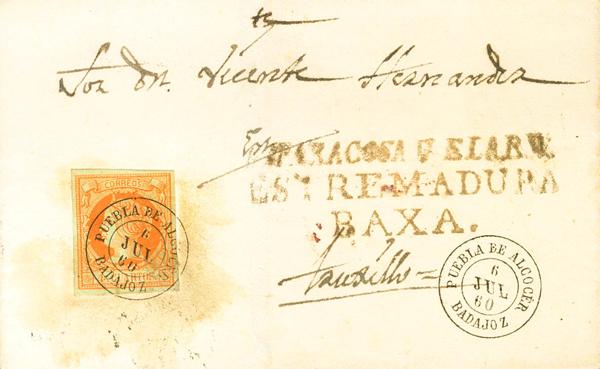 Sor Dn. Vicente Hernandez
ESTREMADURA
BAXA.
Truxillo =
CORREOS
PUEBLA DE ALCOCER
6
JUL
60
BADAJOZ
PUEBLA DE ALCOCER
6
JUL
60
BADAJOZ